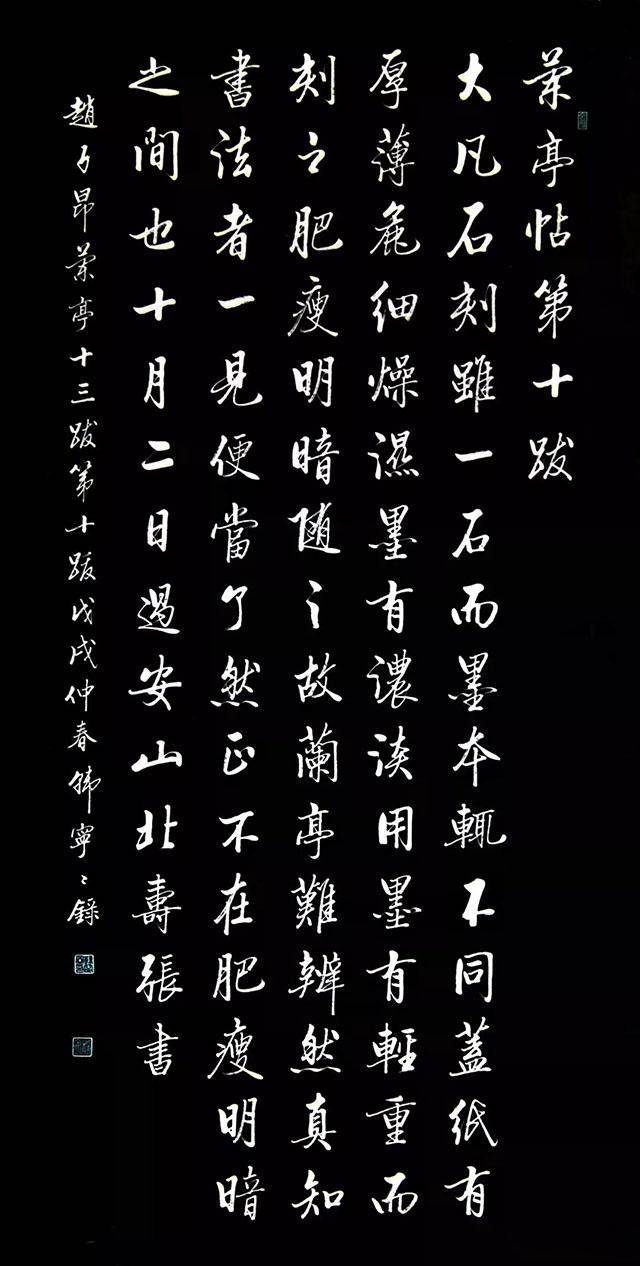 蘭亭帖第十跋
大凡石刻雖一石而墨本輒不同蓋紙有
厚薄麁細燥濕墨有濃淡用墨有輕重而
刻之肥瘦明暗随之故蘭亭難辨然真知
書法者一見便當了然正不在肥瘦明暗
之間也十月二日過安山北壽張書
趙子昂蘭亭十三跋第十跋戊戌仲春韩寧〻錄